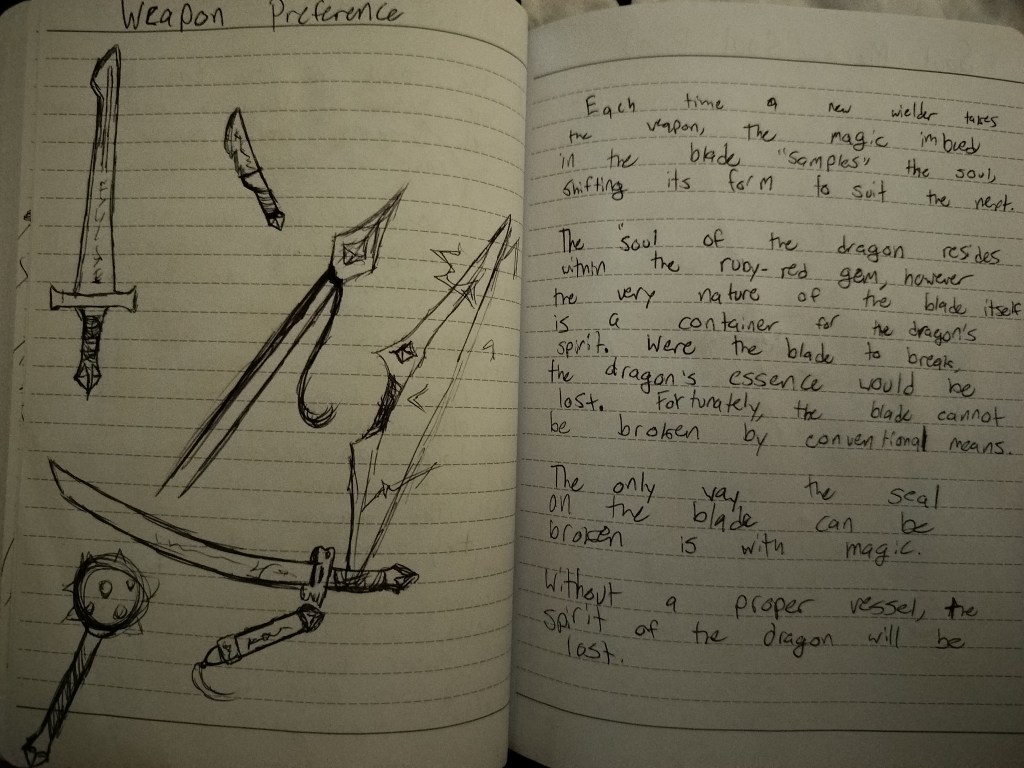 Weapon Preference
Each time a new wielder takes
the weapon, the magic imbued
in the blade "samples" the soul,
shifting its form to suit the next.
The "soul of the dragon resides
within the ruby-red gem, however
the very nature of the blade itself
is a container for the dragon's
spirit. Were the blade to break,
the dragon's essence would be
lost. Fortunately, the blade cannot
be broken by conventional means.
The only way the seal
on the blade can be
broken is with magic.
Without a proper vessel, the
spirit of the dragon will be
lost.